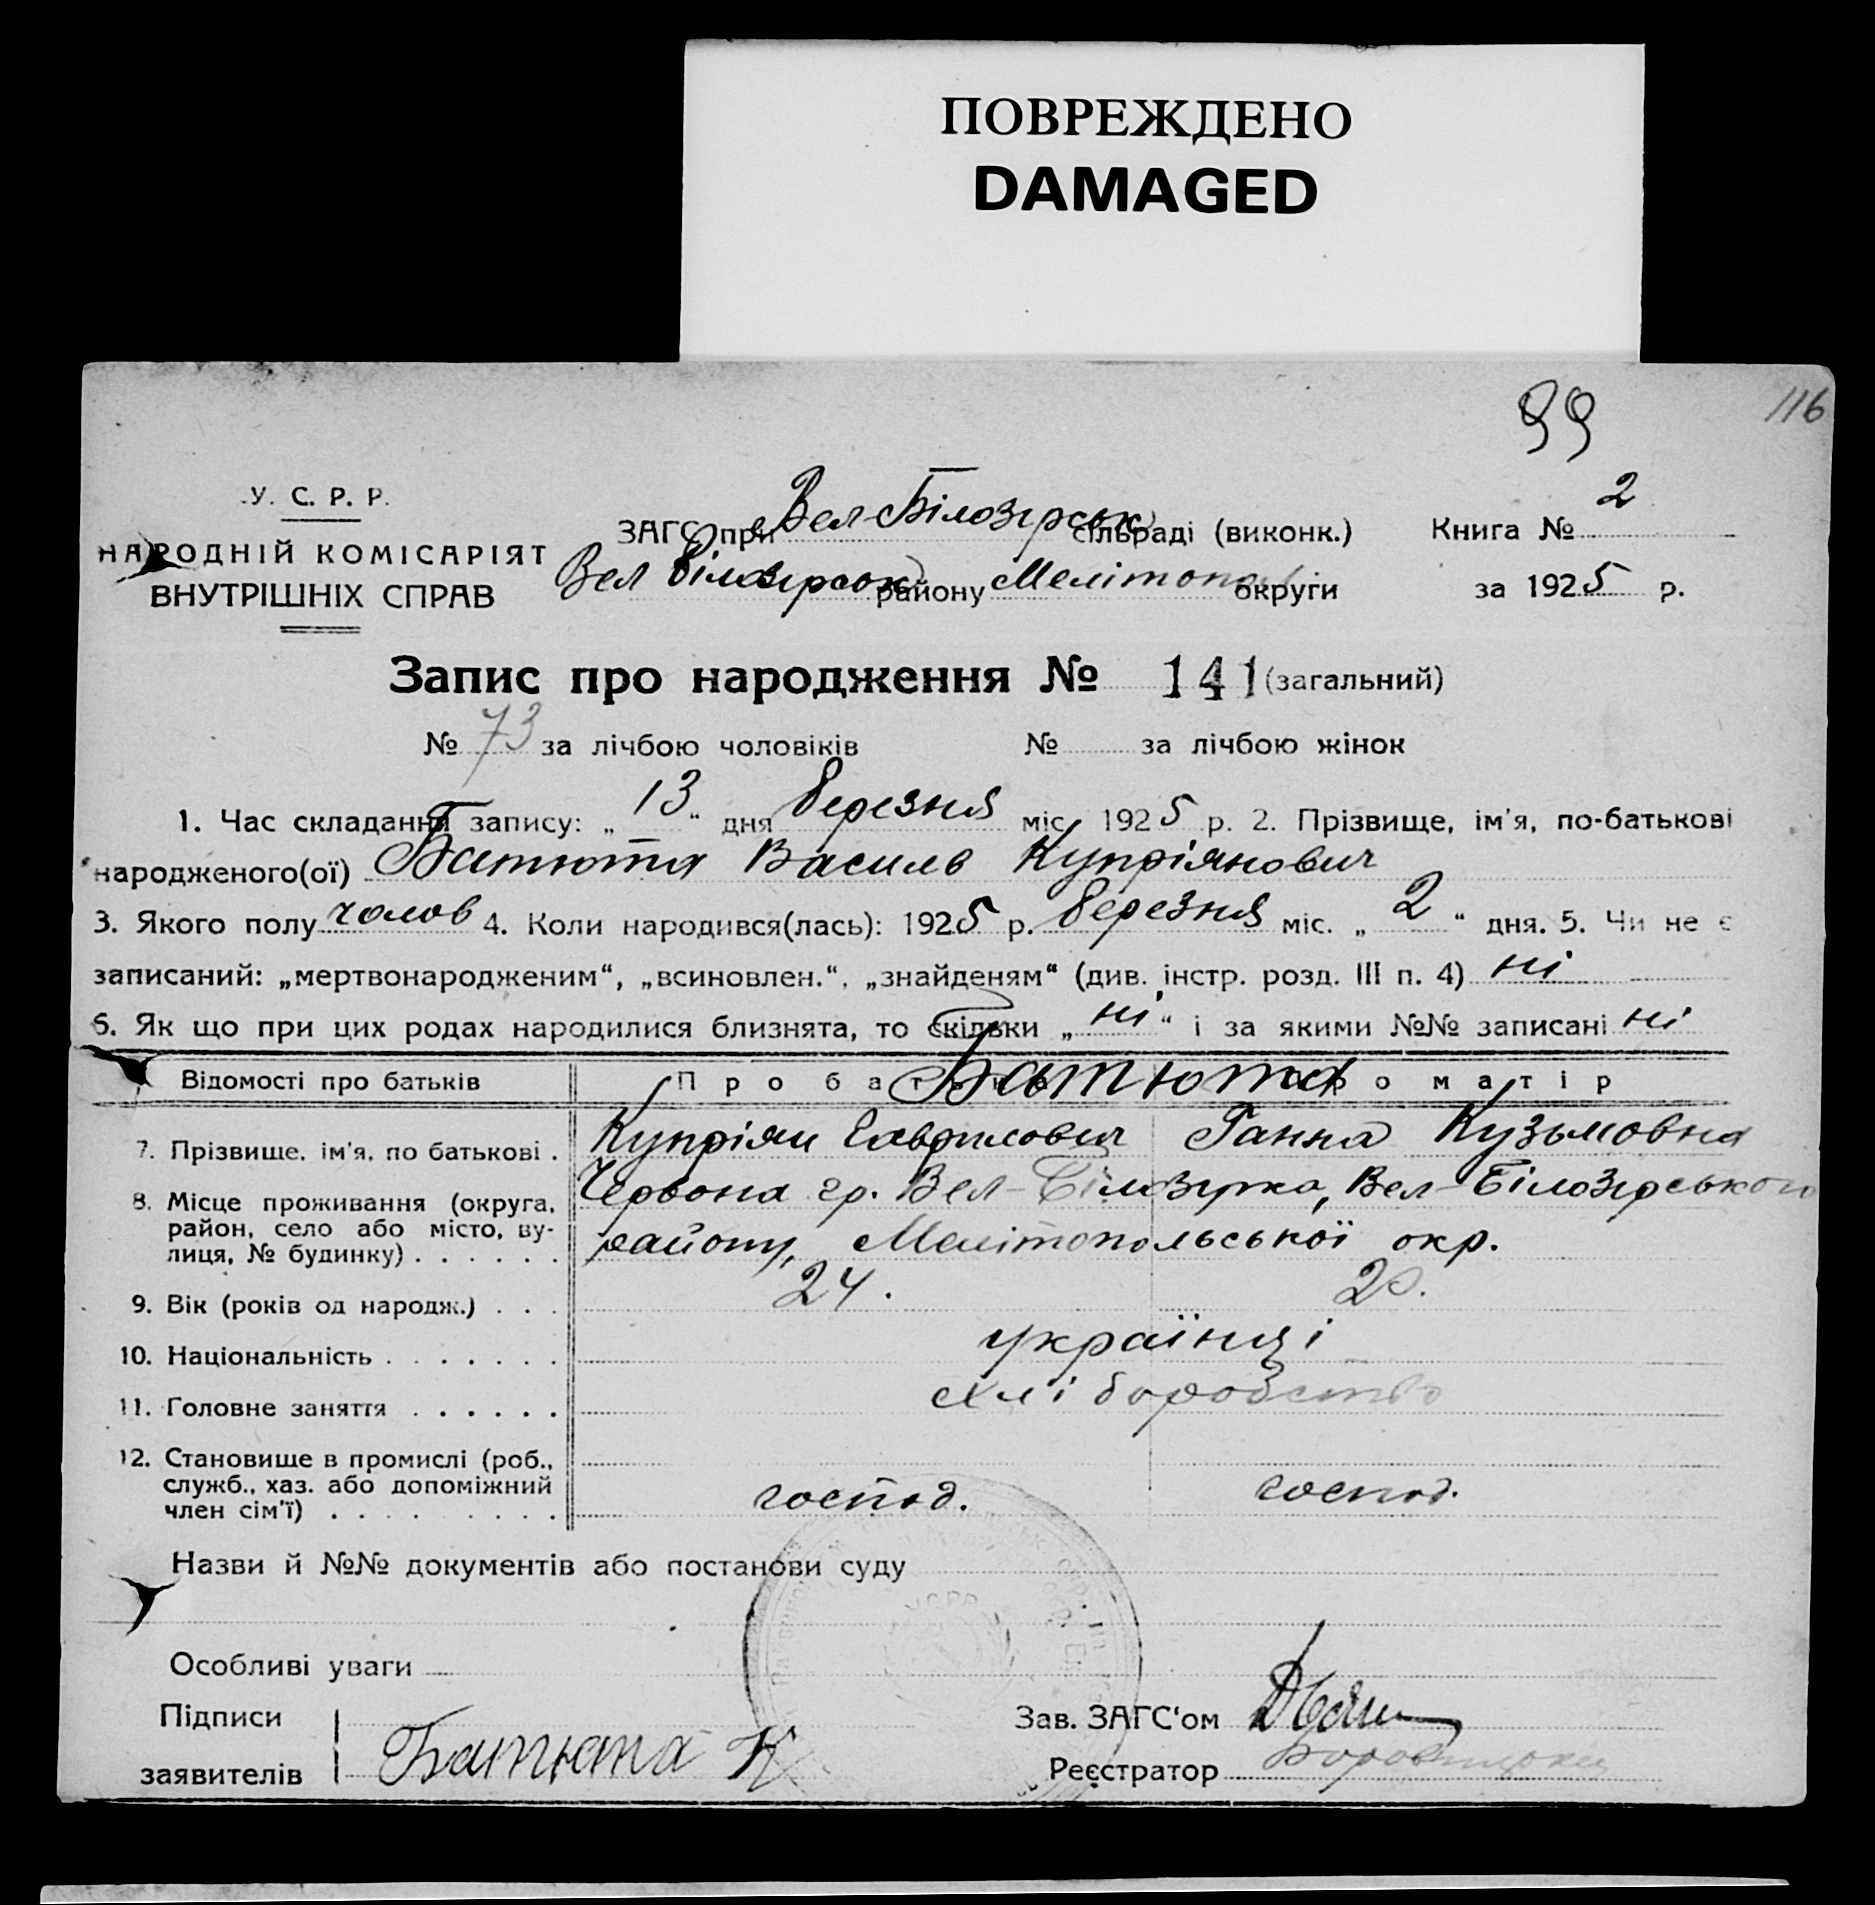 ПОВРЕЖДЕНО
DAMAGED
99
116
У. С. Р. Р.
НАРОДНІЙ КОМІСАРІЯТ
ВНУТРІШНІХ СПРАВ
ЗАГС при Вел-Білозірськ сільраді (виконк.) Книга № 2
Вел Білозірськ району Мелітопол округи за 1925 р.
Запис про народження № 141 (загальний)
№ 73 за лічбою чоловіків № за лічбою жінок
1. Час складання запису: „ 13 “ дня березня міс. 1925 р. 2. Прізвище, ім'я, по-батькові
народженого(ої) Батюта Василь Купріянович
3. Якого полу чолов 4. Коли народився(лась): 1925 р. березня міс. „ 2 “ дня. 5. Чи не є
записаний: „мертвонародженим“, „всиновлен.“, „знайденям“ (див. інстр. розд. III п. 4) ні
6. Як що при цих родах народилися близнята, то скільки „ ні “ і за якими №№ записані ні
Відомості про батьків Про батька Про матір
Батюта
7. Прізвище, ім'я, по батькові . Купріян Гаврилович Ганна Кузьмовна
8. Місце проживання (округа, район, село або місто, ву-
лиця, № будинку) . . . . . . Червона гр. Вел-Білозірка, Вел-Білозірського
району, Мелітопольської окр.
9. Вік (років од народж.) . . . 24. 20.
10. Національність . . . . . . . українці
11. Головне заняття . . . . . . хліборобство
12. Становище в промислі (роб.,
служб., хаз. або допоміжний
член сім'ї) . . . . . . . . . господ. господ.
Назви й №№ документів або постанови суду
УСРР
Особливі уваги
Підписи
заявителів Батюта К
Зав. ЗАГС'ом
Реєстратор